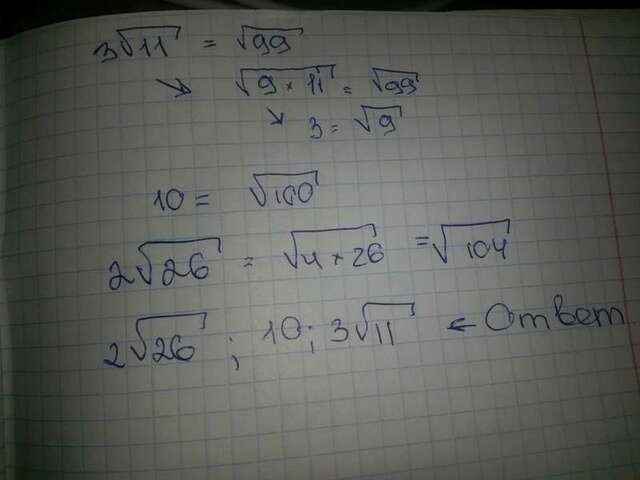 3√11 = √99
↘ √9×11 = √99
↘ 3 = √9
10 = √100
2√26 = √4×26 = √104
2√26 ; 10 ; 3√11 ← Ответ